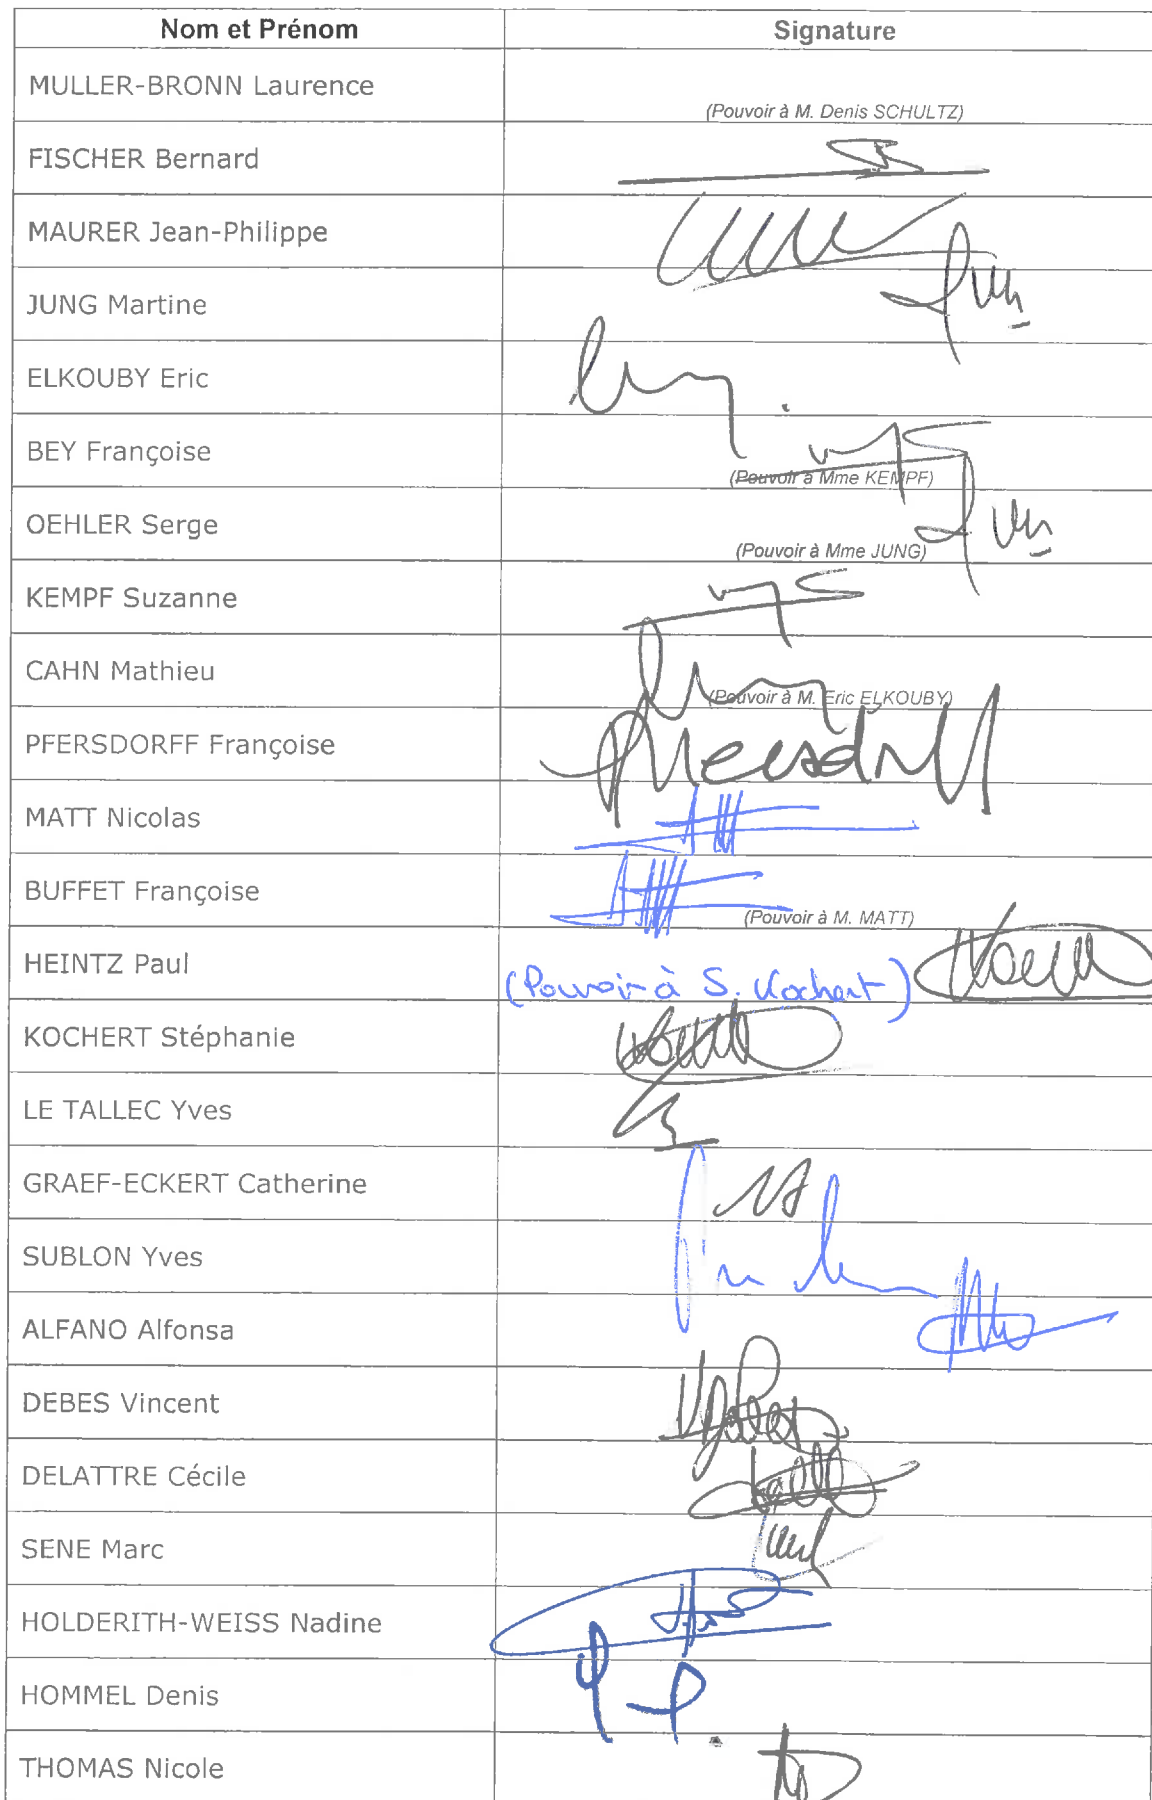 Nom et Prénom Signature
MULLER-BRONN Laurence
(Pouvoir à M. Denis SCHULTZ)
FISCHER Bernard
MAURER Jean-Philippe
JUNG Martine
ELKOUBY Eric
BEY Françoise
(Pouvoir à Mme KEMPF)
OEHLER Serge
(Pouvoir à Mme JUNG)
KEMPF Suzanne
CAHN Mathieu
(Pouvoir à M. Eric ELKOUBY)
PFERSDORFF Françoise
MATT Nicolas
BUFFET Françoise
(Pouvoir à M. MATT)
HEINTZ Paul
(Pouvoir à S. Kochert)
KOCHERT Stéphanie
LE TALLEC Yves
GRAEF-ECKERT Catherine
SUBLON Yves
ALFANO Alfonsa
DEBES Vincent
DELATTRE Cécile
SENE Marc
HOLDERITH-WEISS Nadine
HOMMEL Denis
THOMAS Nicole